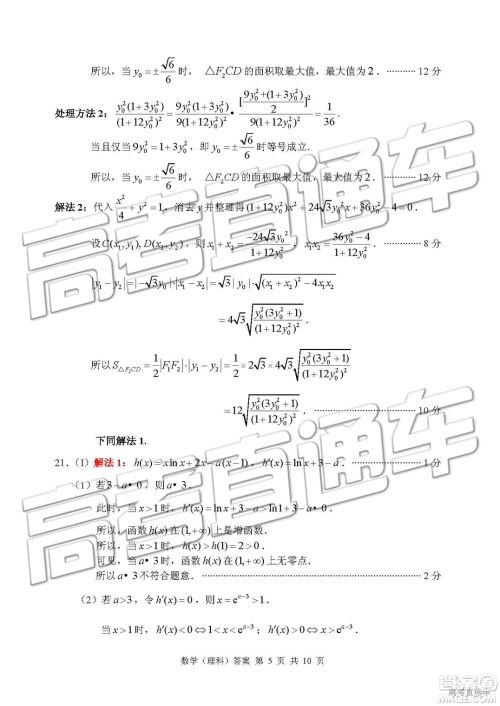 所以，当 y₀=±√6/6 时，△F₂CD 的面积取最大值，最大值为 2．··········· 12 分
处理方法 2：y₀²(1+3y₀²)/(1+12y₀²)² = 9y₀²(1+3y₀²)/9(1+12y₀²)² • [(9y₀²+(1+3y₀²))/2]²/9(1+12y₀²)² = 1/36．
当且仅当 9y₀²=1+3y₀²，即 y₀=±√6/6 时等号成立.
解法 2：代入 x²/4+y²=1，消去 y 并整理得 (1+12y₀²)x²+24√3y₀²x+36y₀²−4=0．
设 C(x₁,y₁), D(x₂,y₂)，则 x₁+x₂=−24√3y₀²/(1+12y₀²)，x₁x₂=(36y₀²−4)/(1+12y₀²)．············ 8 分
|y₁−y₂|=|−√3y₀||x₁−x₂|=√3|y₀|·√((x₁+x₂)²−4x₁x₂)
=4√3√(y₀²(3y₀²+1)/(1+12y₀²)²)．
所以 S△F₂CD=1/2|F₁F₂|·|y₁−y₂|=1/2×2√3×4√3√(y₀²(3y₀²+1)/(1+12y₀²)²)
=12√(y₀²(3y₀²+1)/(1+12y₀²)²)．············ 10 分
下同解法 1.
21．（I）解法 1：h(x)=xlnx+2x−a(x−1)，h′(x)=lnx+3−a．············ 1 分
（1）若 3−a•0，则 a•3．
此时，当 x>1 时，h′(x)=lnx+3−a>ln1+3−a•0．
所以，函数 h(x) 在 (1,+∞) 上是增函数.
所以，当 x>1 时，h(x)>h(1)=2>0．
可见，当 a•3 时，函数 h(x) 在 (1,+∞) 上无零点.
所以 a•3 不符合题意．············ 2 分
（2）若 a>3，令 h′(x)=0，则 x=eᵃ⁻³>1．
当 x>1 时，h′(x)<0⇔1<x<eᵃ⁻³；h′(x)>0⇔x>eᵃ⁻³．
数学（理科）答案 第 5 页 共 10 页
高考直通车
高考直通车